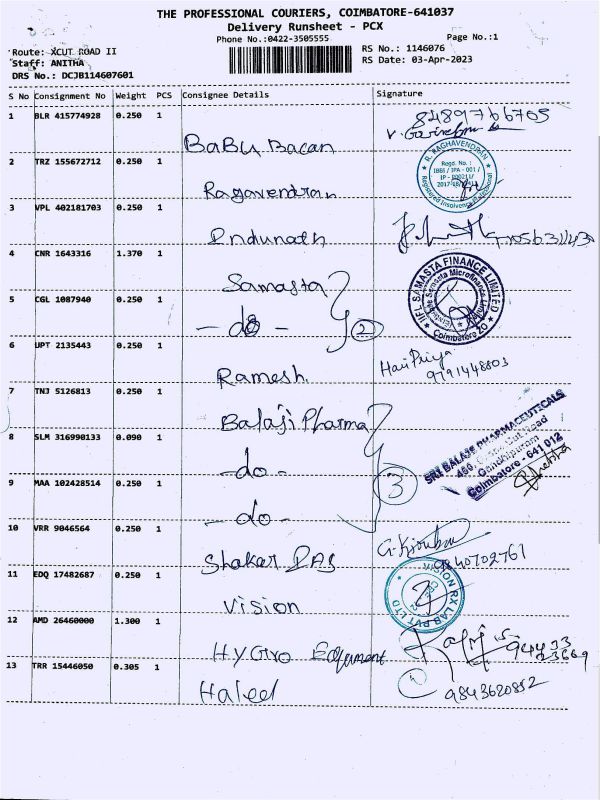 THE PROFESSIONAL COURIERS, COIMBATORE-641037
Delivery Runsheet - PCX
Phone No.:0422-3505555
Page No.:1
Route: XCUT ROAD II
Staff: ANITHA
DRS No.: DCJB114607601
RS No.: 1146076
RS Date: 03-Apr-2023
S No Consignment No Weight PCS Consignee Details Signature
1 BLR 415774928 0.250 1 BaBu Bacan 8489766705
2 TRZ 155672712 0.250 1 Ragavendran
R. RAGHAVENDRAN
Regd. No. :
IBBI / IPA - 001 /
Registered Insolvency Professional
3 VPL 402181703 0.250 1 Indunath
4 CNR 1643316 1.370 1 Samasta
IIFL SAMASTA FINANCE LIMITED
Coimbatore 20
5 CGL 1087940 0.250 1 - do - 2
6 UPT 2135443 0.250 1 Ramesh Hari Priya
9791448803
7 TNJ 5126813 0.250 1 Balaji Pharma
SRI BALAJI PHARMACEUTICALS
Gandhipuram
Coimbatore - 641 012
8 SLM 316990133 0.090 1 -do-
9 MAA 102428514 0.250 1 -do- 3
10 VRR 9046564 0.250 1 Shakar DAS
9840702761
11 EDQ 17482687 0.250 1 Vision
VISION RX LAB PVT LTD
12 AMD 26460000 1.300 1 HyGro Equment
94433
23669
13 TRR 15446050 0.305 1 Haleel 9843620852